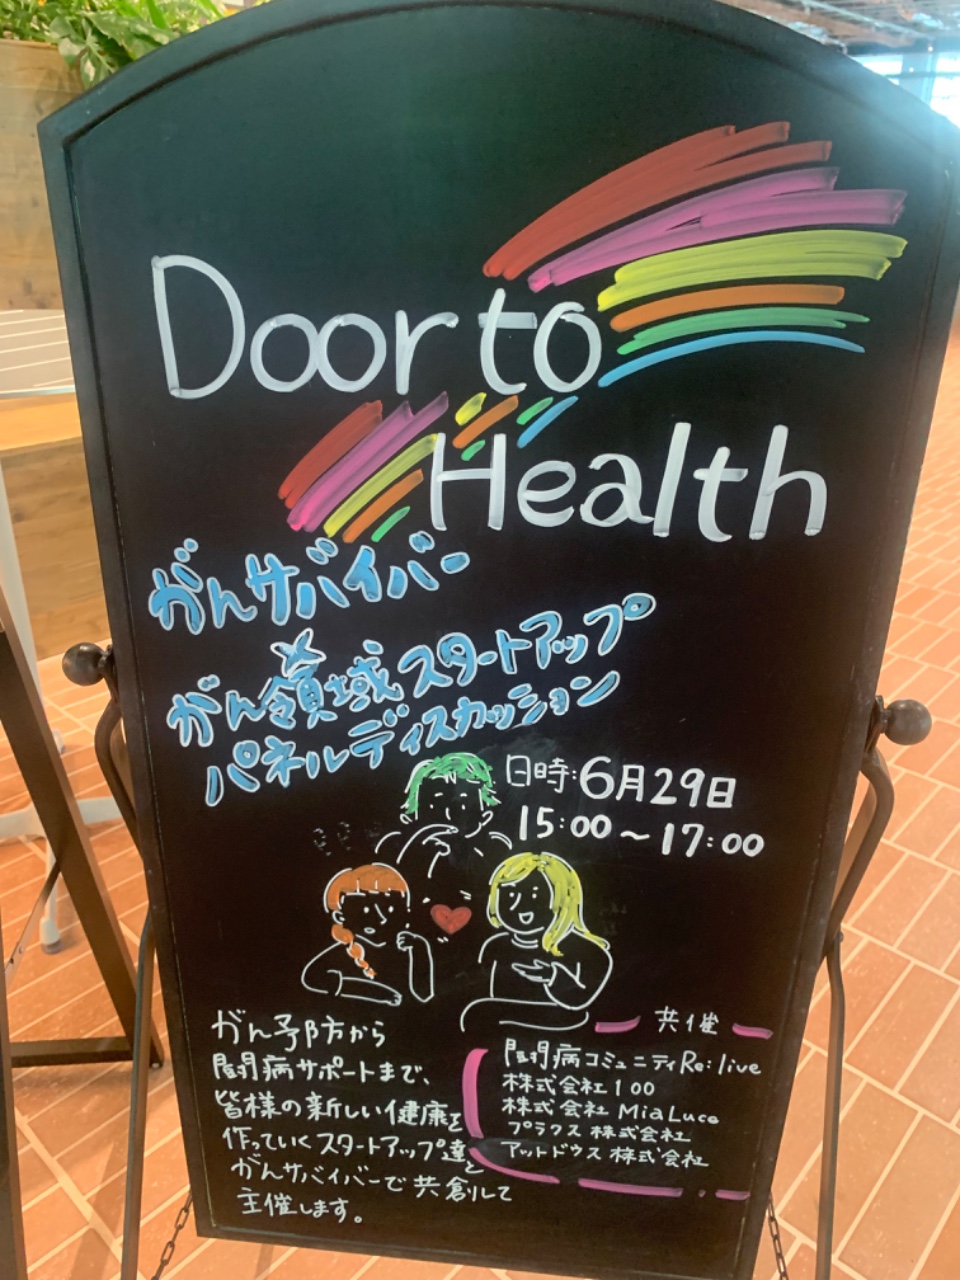 Door to
Health
がんサバイバー
×
がん領域スタートアップ
パネルディスカッション
日時:6月29日
15:00～17:00
がん予防方から
闘病サポートまで、
皆様の新しい健康を
作っていくスタートアップ達と
がんサバイバーで共創して
主催します。
共催
闘病コミュニティRe:live
株式会社100
株式会社MiaLuce
プラクス株式会社
アットドウス株式会社